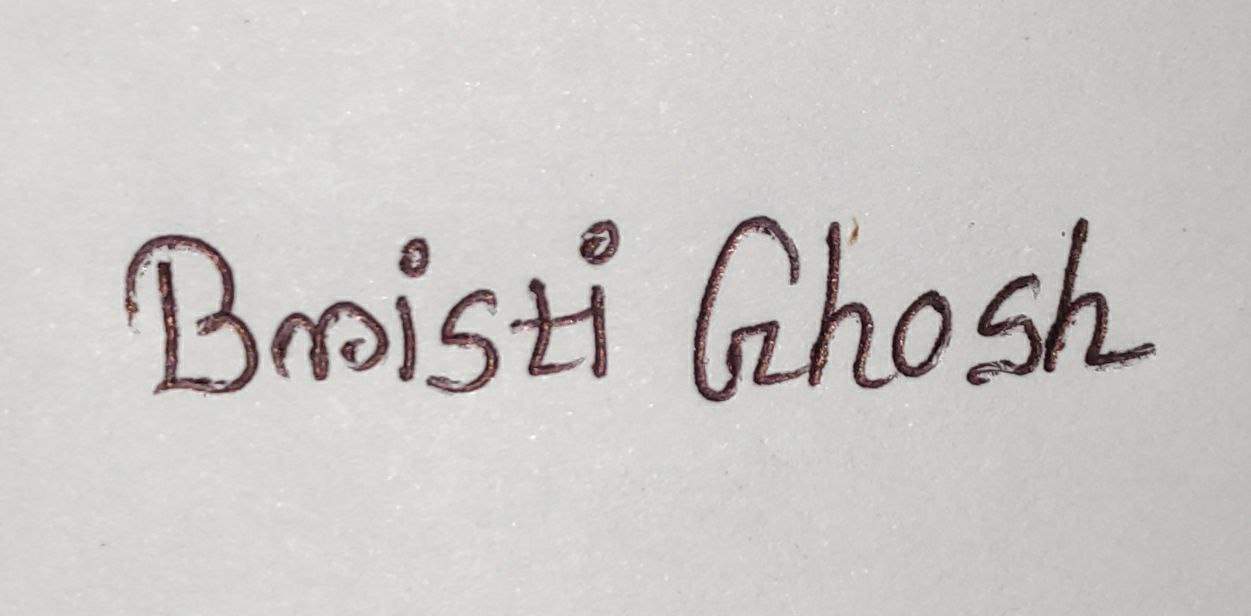 Bristi Ghosh